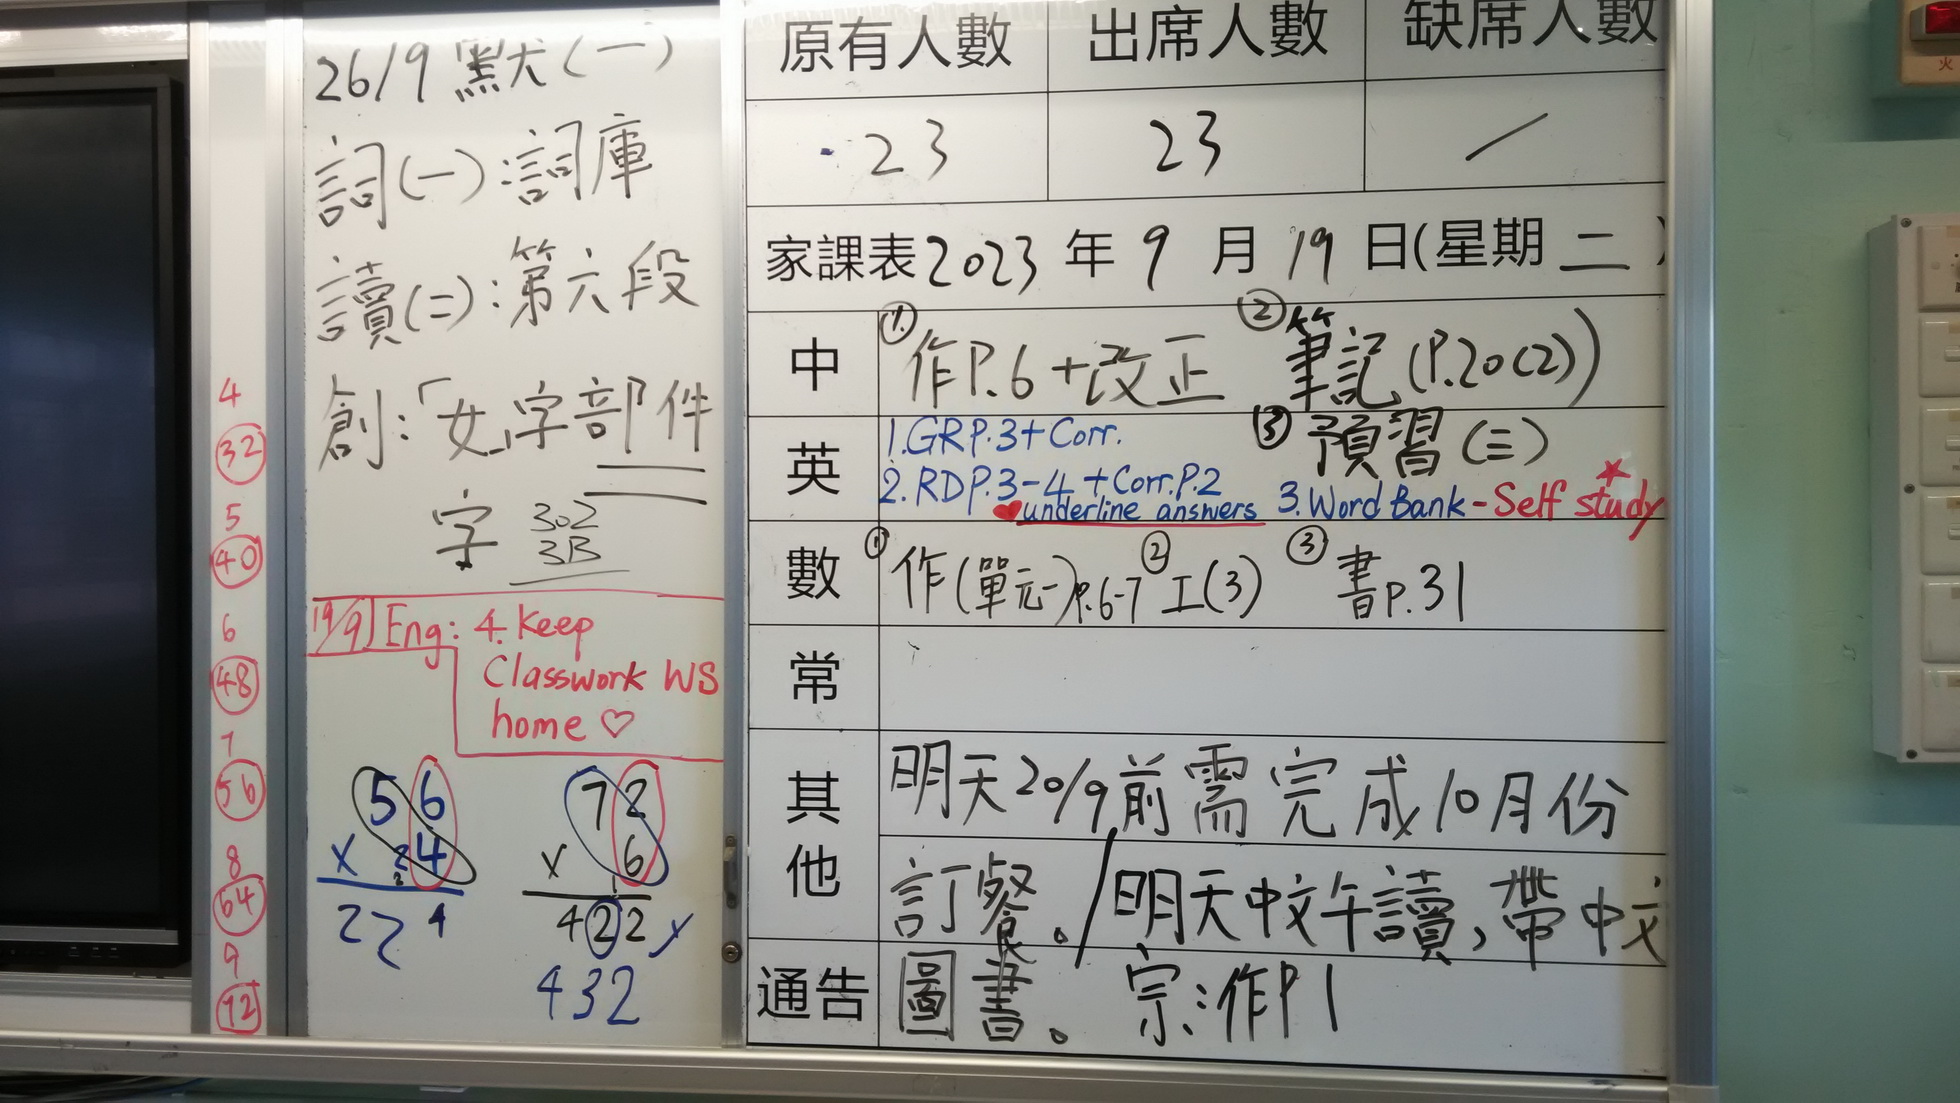 4
32
5
40
6
48
7
56
8
64
9
72
26/9 默(一)
詞(一):詞庫
讀(二):第六段
創:「女」字部件
字 302
3B
19/9 Eng: 4. Keep
Classwork WS
home ♡
56
x 4
2
224
72
x 6
1
422 x
432
原有人數 出席人數 缺席人數
23 23 /
家課表 2023 年 9 月 19 日(星期 二 )
中 ① 作P.6 + 改正 ② 筆記 (P.20(2))
③ 預習(三)
英 1. GR P.3 + Corr.
2. RD P.3-4 + Corr. P.2
underline answers 3. Word Bank - Self study
數 ① 作(單元一)P.6-7 ② 工(3) ③ 書P.31
常
其他 明天20/9前需完成10月份
訂餐。/明天中文午讀,帶中文
通告 圖書。 宗:作P1
火